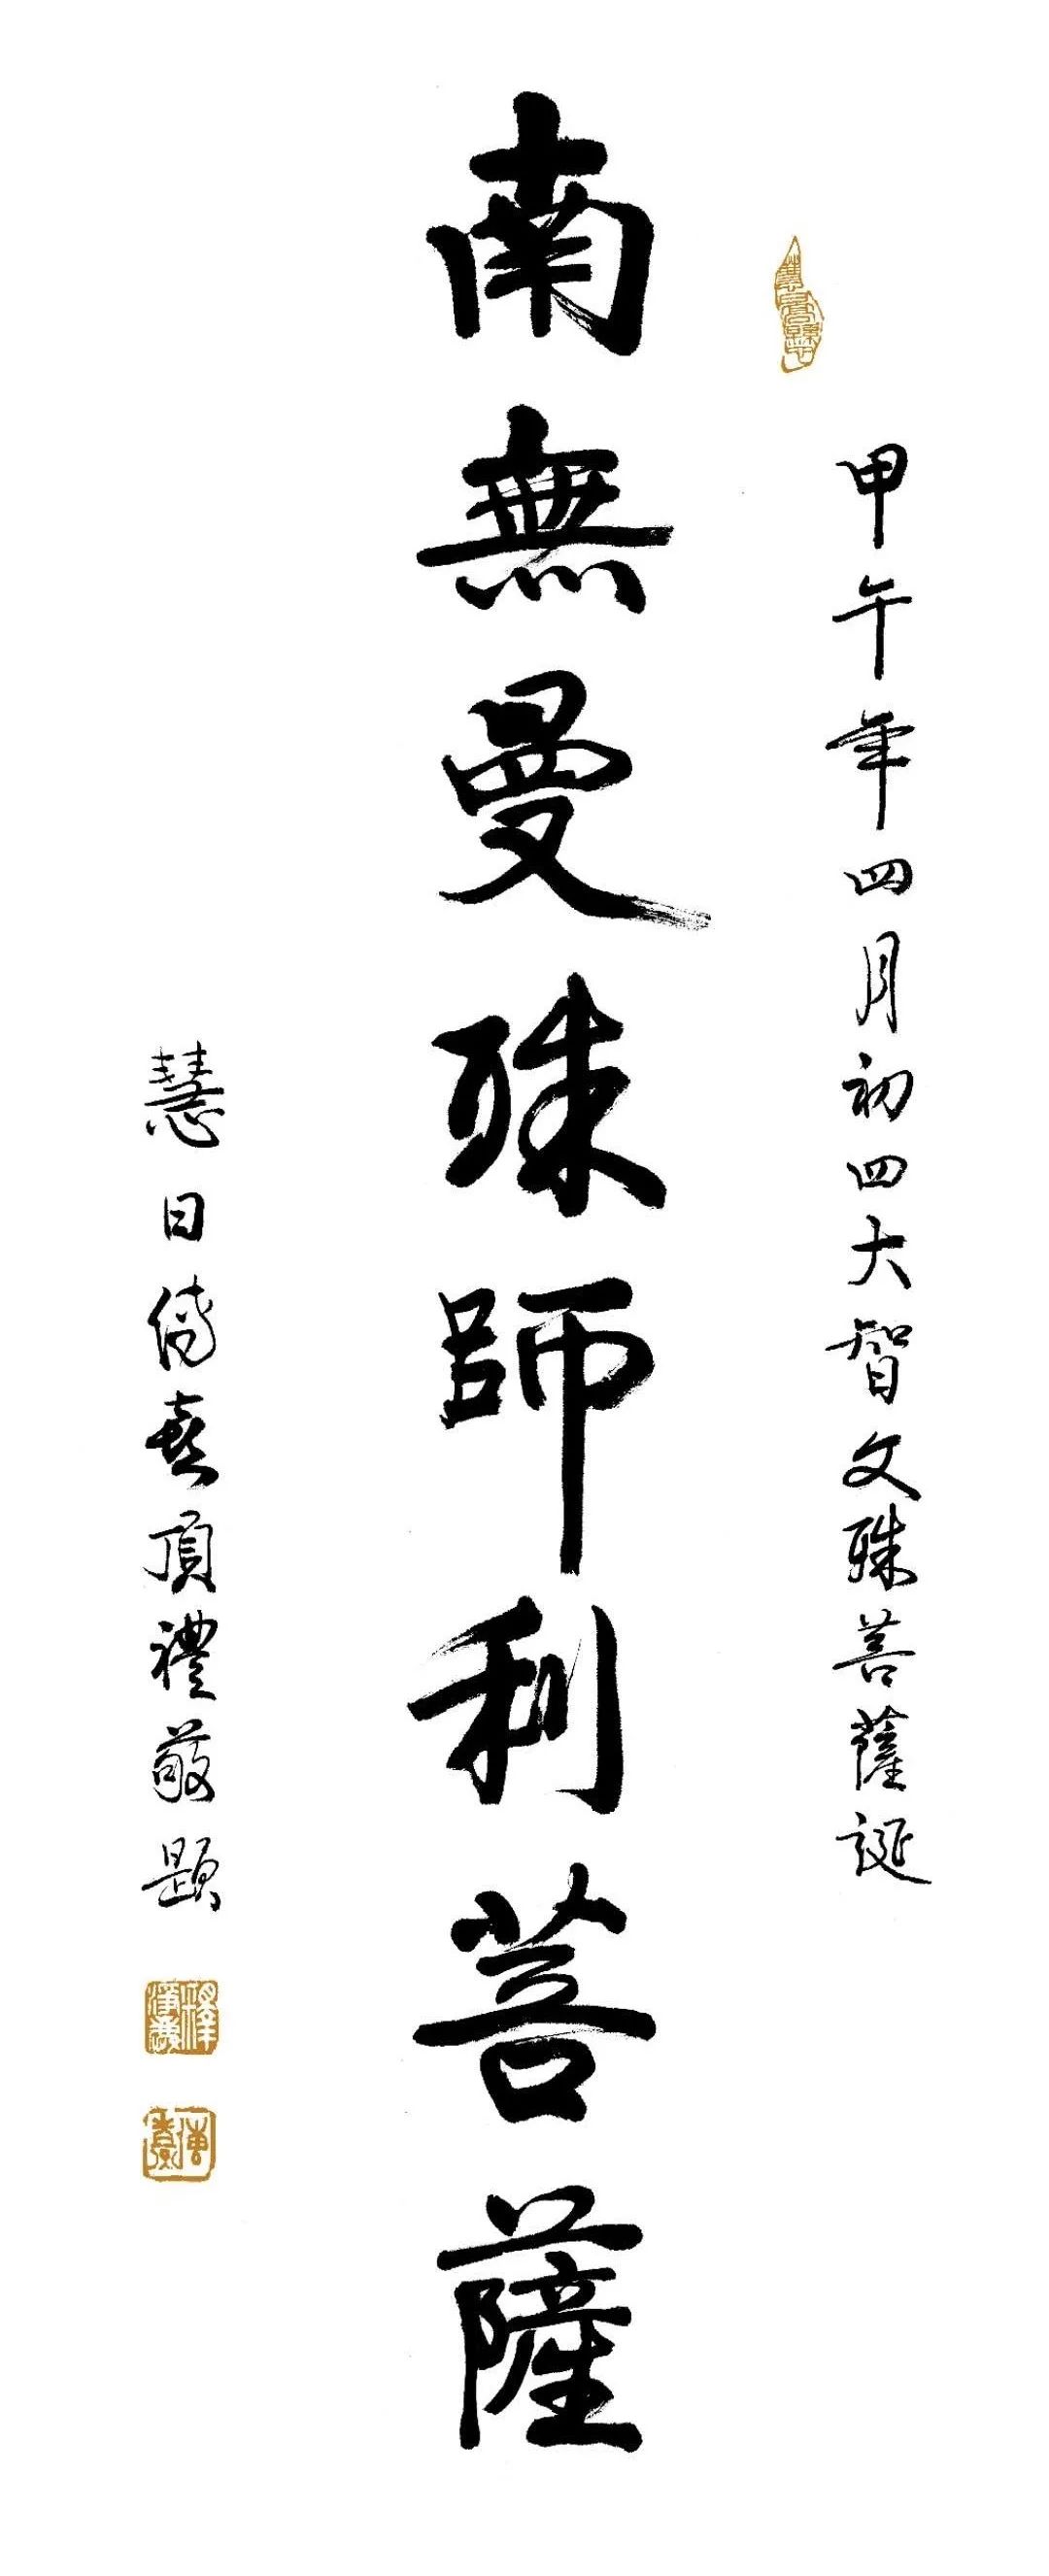 甲午年四月初四大智文殊菩薩誕
南無曼殊師利菩薩
慧日傳喜頂禮敬題